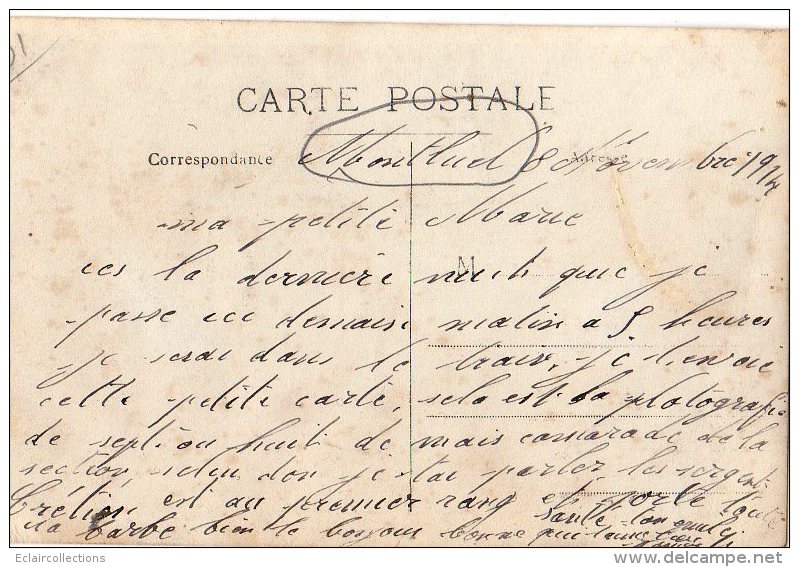 CARTE POSTALE
Correspondance Montluel 8 Novembre 1914
Adresse
ma petite Marie
ces la derniere nuit que je
passe ici demain matin a 5 heures
je serai dans le train, je t'envoie
cette petite carte, sela est la photografie
de sept ou huit de mais camarade de la
section, selui don je t'ai parler le sergent
Brétion est au premier rang et porte toute
la barbe bien le bonjour bonne
santé ton
N
Eclaircollections
delcampe.net